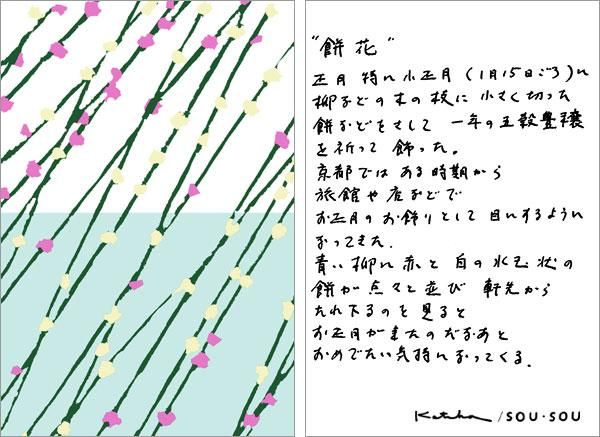 "餅花"
正月 特に小正月(1月15日ごろ)に
柳などの木の枝に 小さく切った
餅などをさして 一年の五穀豊穣
を祈って 飾った。
京都では ある時期から
旅館や店などで
お正月のお飾りとして 目にするように
なってきた.
青い柳に赤と白の水玉状の
餅が点々と並び 軒先から
たれ下るのを見ると
お正月がきたのだなあと
おめでたい気持になってくる.
Katsuji /SOU・SOU